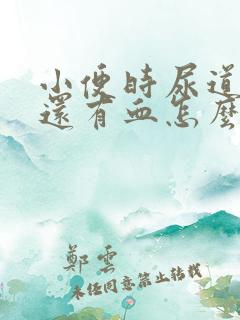 小便時尿道
還有血怎麼
鄭雲
未经同意禁止转载